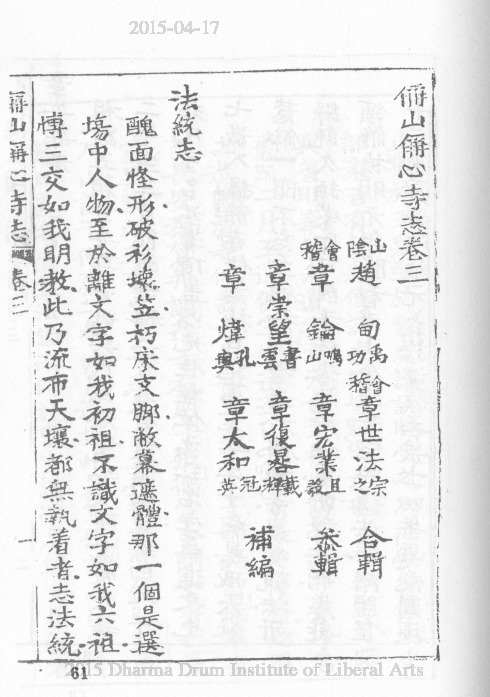 2015-04-17
偁山稱心寺志卷三
山陰趙甸禹功 會稽章世法宗之 合輯
會稽章鑰鳴山 章宏業且毅 叅輯
章崇望書雲 章復晷載 補編
章煒孔輿 章太和冠英
法統志
醜面怪形破衫壞笠朽床支脚敝幕遮體那一個是選
塲中人物至於離文字如我初祖不識文字如我六祖
慱三交如我明教此乃流布天壤都無執着者志法統
偁山稱心寺志 卷三 一
61
2015 Dharma Drum Institute of Liberal Arts